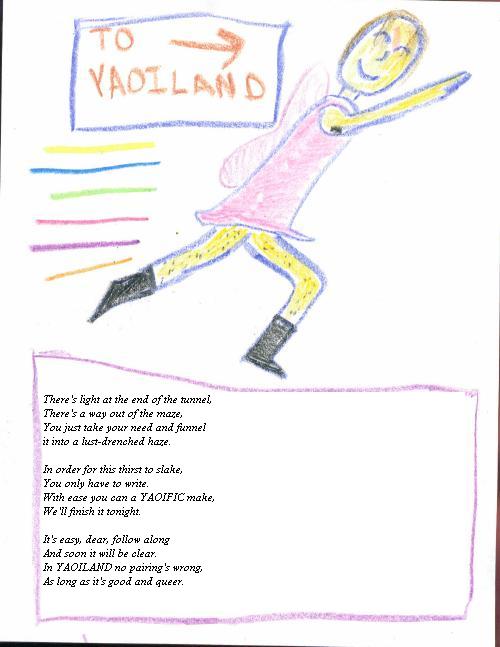 TO
YAOILAND
There's light at the end of the tunnel,
There's a way out of the maze,
You just take your need and funnel
it into a lust-drenched haze.
In order for this thirst to slake,
You only have to write.
With ease you can a YAOIFIC make,
We'll finish it tonight.
It's easy, dear, follow along
And soon it will be clear.
In YAOILAND no pairing's wrong,
As long as it's good and queer.